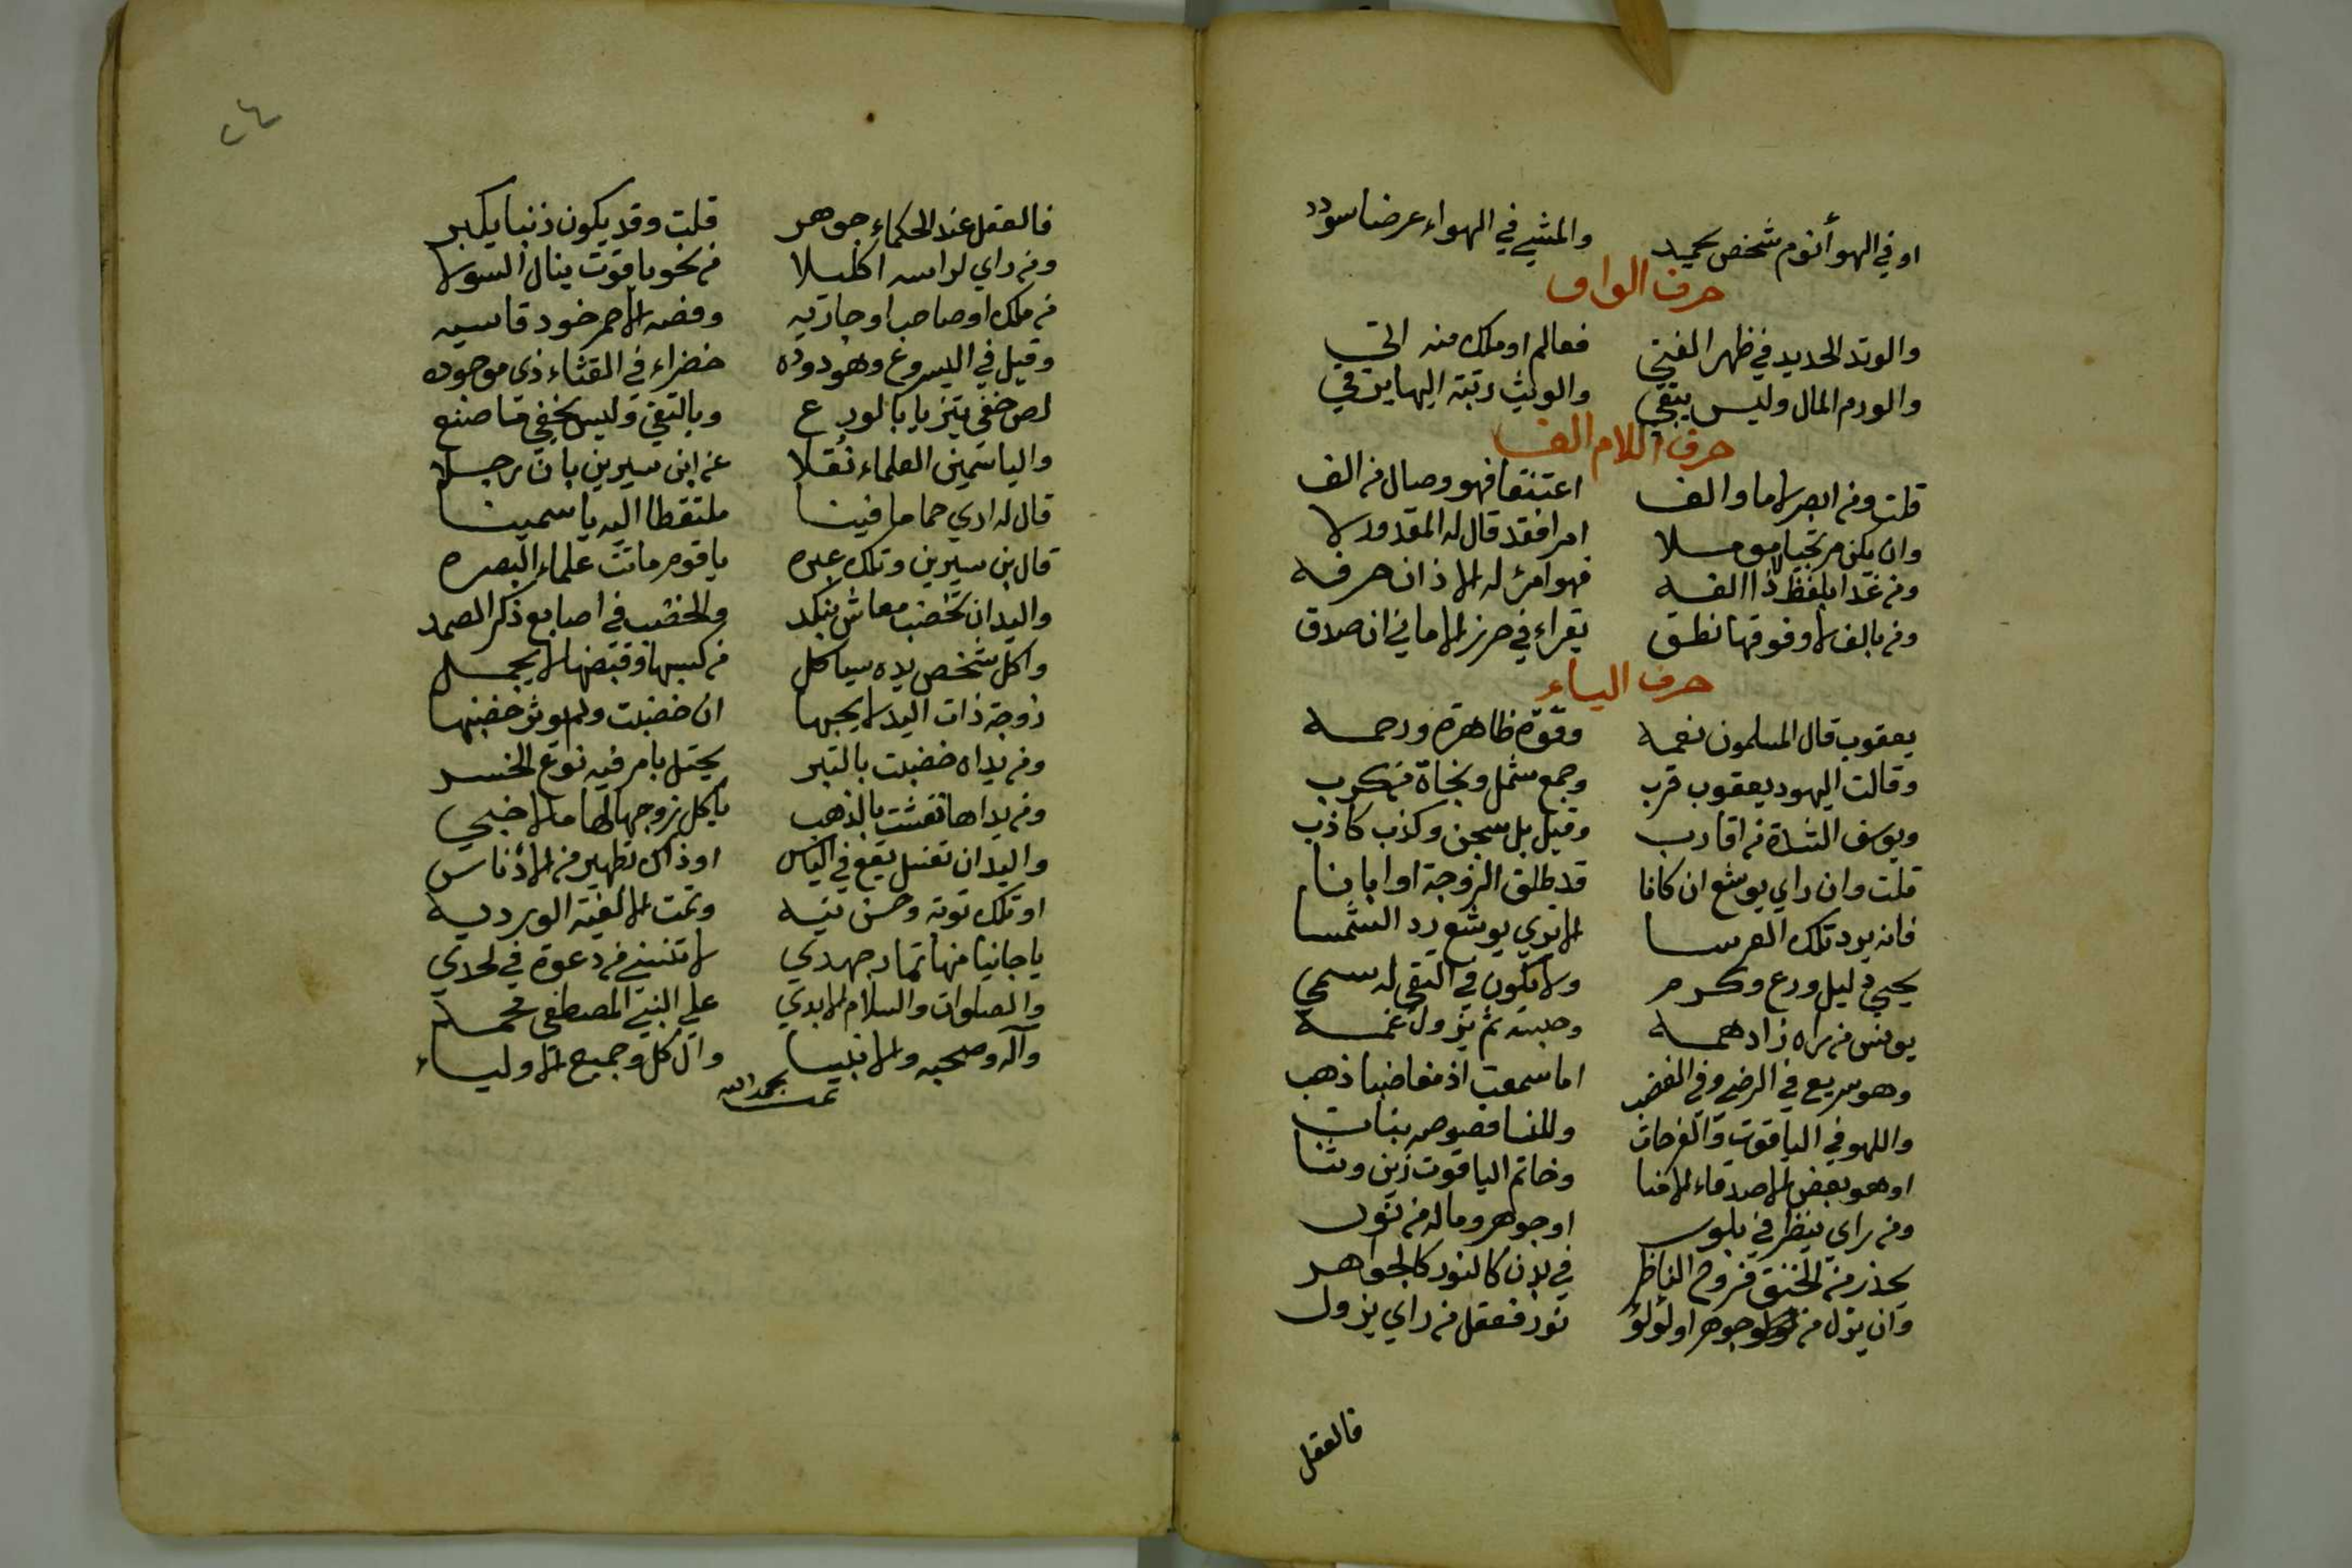 او في الهوأ نوم شخص يحميد والمشي في الهواء عرضا سودد
حرف الواو
والوتد الحديد في ظهر الفتى فعالم او ملك منه اتي
والورم المال وليس يبقي والوثب رتبة اليها يرتقي
حرف اللام الف
قلت ومن ابصر لاما والف اعتنقا فهو وصال من الف
وان يكن مرتجيا مومـلا امرا فقد قال له المقدور لا
ومن غدا بلفظ ذا الفـه فهو امرئ له الاذان حرفـه
ومن بالف لا وفوقها نطـق يقراء في حرز الاماني ان صدق
حرف اليـاء
يعقوب قال المسلمون نعمـه وقوة ظاهرة ورحمـه
وقالت اليهود يعقوب قرب وجمع شمل ونجاة من كرب
ويوسف الشدة من اقارب وقيل بل سجن وكذب كاذب
قلت وان راي يوشع ان كانا قد طلق الزوجة او ابانا
فانه يرد تلك العرسـا الا تري يوشع رد الشمسـا
يحيي دليل ورع وكـرم ولا يكون في التقي له سمي
يونس من راه زاد همـه وحبسه ثم يزول غمـه
وهو سريع في الرضي وفي الغضب اما سمعت اذ مغاضبا ذهب
واللهو في الياقوت والفرحات وللنسا فصوصه بنات
او هو بعض الاصدقاء الاخنا وخاتم الياقوت زين وثنا
ومن راي ينظر في بلور او جوهر وماله من نور
يحذر من الخنق فروح الناظر في بدن كالنور كالجواهر
وان يزل من جوهر او لؤلؤ نور فعقل من راي يزول
فالعقل
٢٤
فالعقل عند الحكماء جوهر قلت وقد يكون ذنبا يكبر
ومن راي لراسه اكليلا من نحو ياقوت ينال السولا
من ملك او صاحب او جاريه وفصه الاحمر خود قاسيه
وقيل في اليسروع وهو دوده خضراء في القثاء ذي موجوده
لص خفي يتزيا بالورع وبالتقي وليس يخفي ما صنع
والياسمين العلماء نقلا عن ابن سيرين بان رجـلا
قال له اري حماما فينـا ملتقطا اليه ياسمينـا
قال بن سيرين وتلك عبره يا قوم ماتت علماء البصره
واليد ان تخضب معاش بنكد والخضب في اصابع ذكر الصمد
واكل شخص يده سياكل من كسبها وقبضها لا يجمـل
زوجة ذات اليد لا يحبها ان خضبت ولم يوثر خضبها
ومن يداه خضبت بالتبر يحتل بامر فيه نوع الخسـر
ومن يداها نقشت بالذهب ياكل زوجها لها مال اجنبي
واليد ان تغسل يقع في الياس او ذاك تطهير من الادناس
او تلك توبه وحسن نيـه وتمت الالفية الورديـه
يا جانيا منها ثمار جهدي لا تنسني من دعوة في لحدي
والصلوات والسلام الابدي علي النبي المصطفي محمـد
وآله وصحبه والانبيـا وآل كل وجميع الاوليـاء
تمت بحمد الله